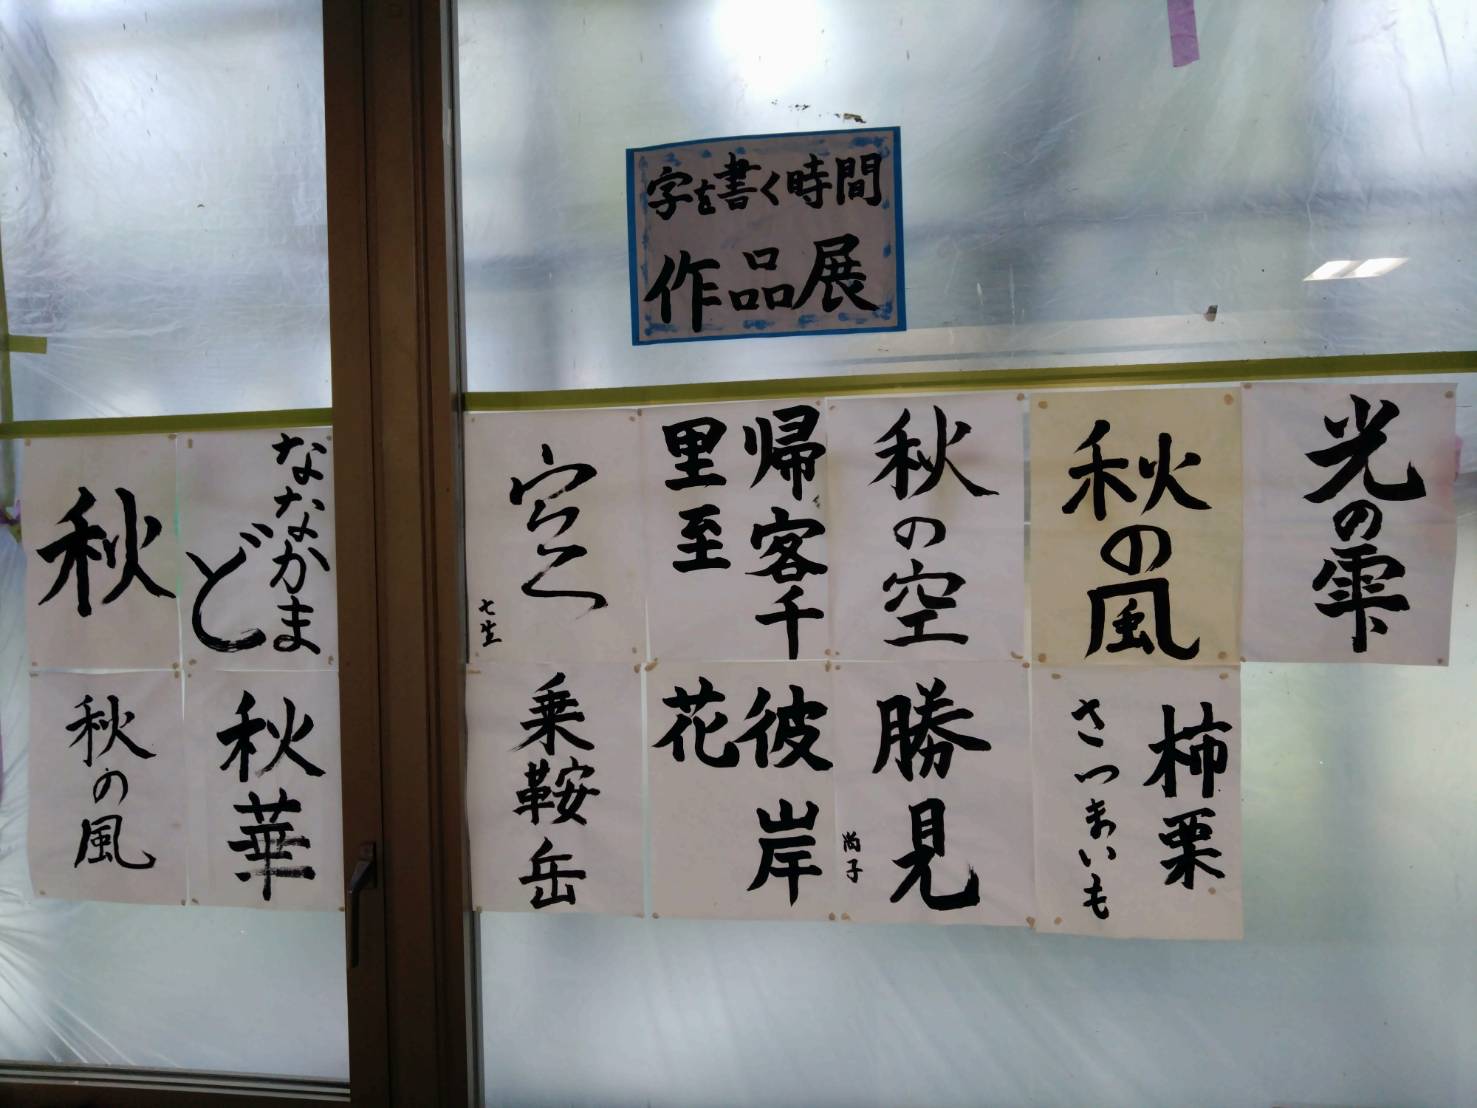 字を書く時間
作品展
光の雫
秋の風
秋の空
帰客千
里至
七生
ななかま
ど
秋
柿栗
さつまいも
勝見
尚子
彼岸
花
乗鞍岳
秋華
秋の風